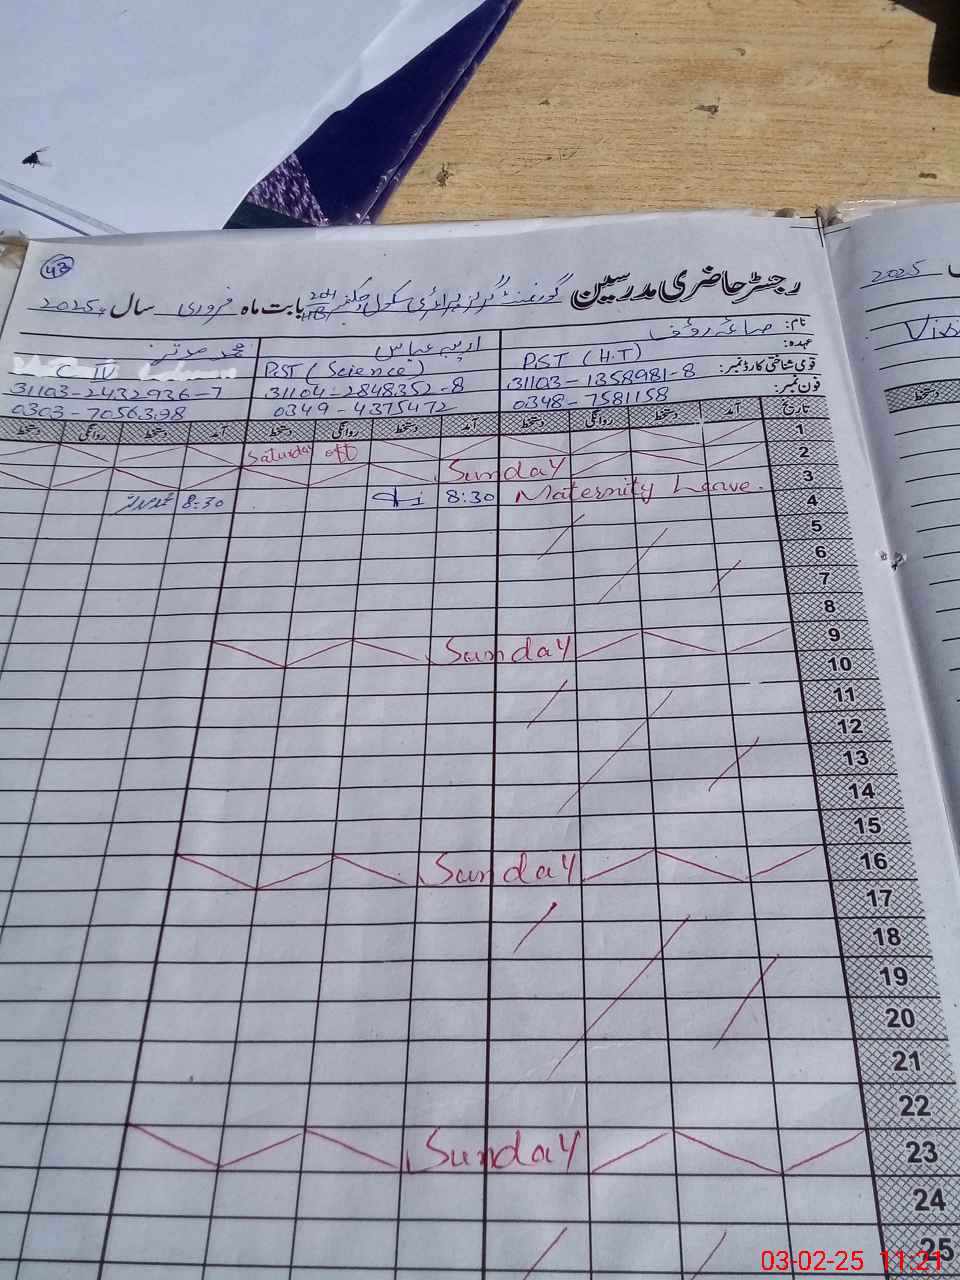 43
رجسٹر حاضری مدرسین گورنمنٹ گرلز پرائمری سکول چک نمبر 201 بابت ماہ فروری سال 2025ء
2025
نام: صائمہ رؤف
عہدہ: PST (H.T) PST (Science) C IV
قومی شناختی کارڈ نمبر: 31103-1358981-8 31104-2848352-8 31103-2432936-7
فون نمبر: 0348-7581158 0349-4375472 0303-7056398
تاریخ آمد دستخط روانگی دستخط آمد دستخط روانگی دستخط آمد دستخط روانگی دستخط
1 Saturday off
2 Sunday
3 Maternity Leave. 8:30 8:30
4
5
6
7
8
9 Sunday
10
11
12
13
14
15
16 Sunday
17
18
19
20
21
22
23 Sunday
24
25
03-02-25 11:21